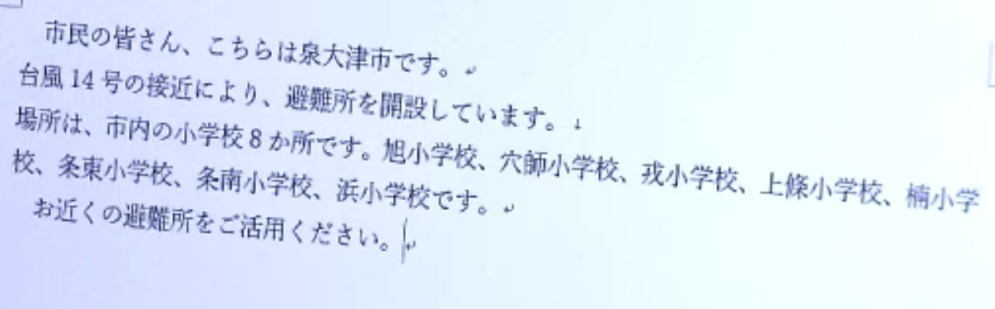 市民の皆さん、こちらは泉大津市です。
台風14号の接近により、避難所を開設しています。
場所は、市内の小学校8か所です。旭小学校、穴師小学校、戎小学校、上條小学校、楠小学
校、条東小学校、条南小学校、浜小学校です。
お近くの避難所をご活用ください。